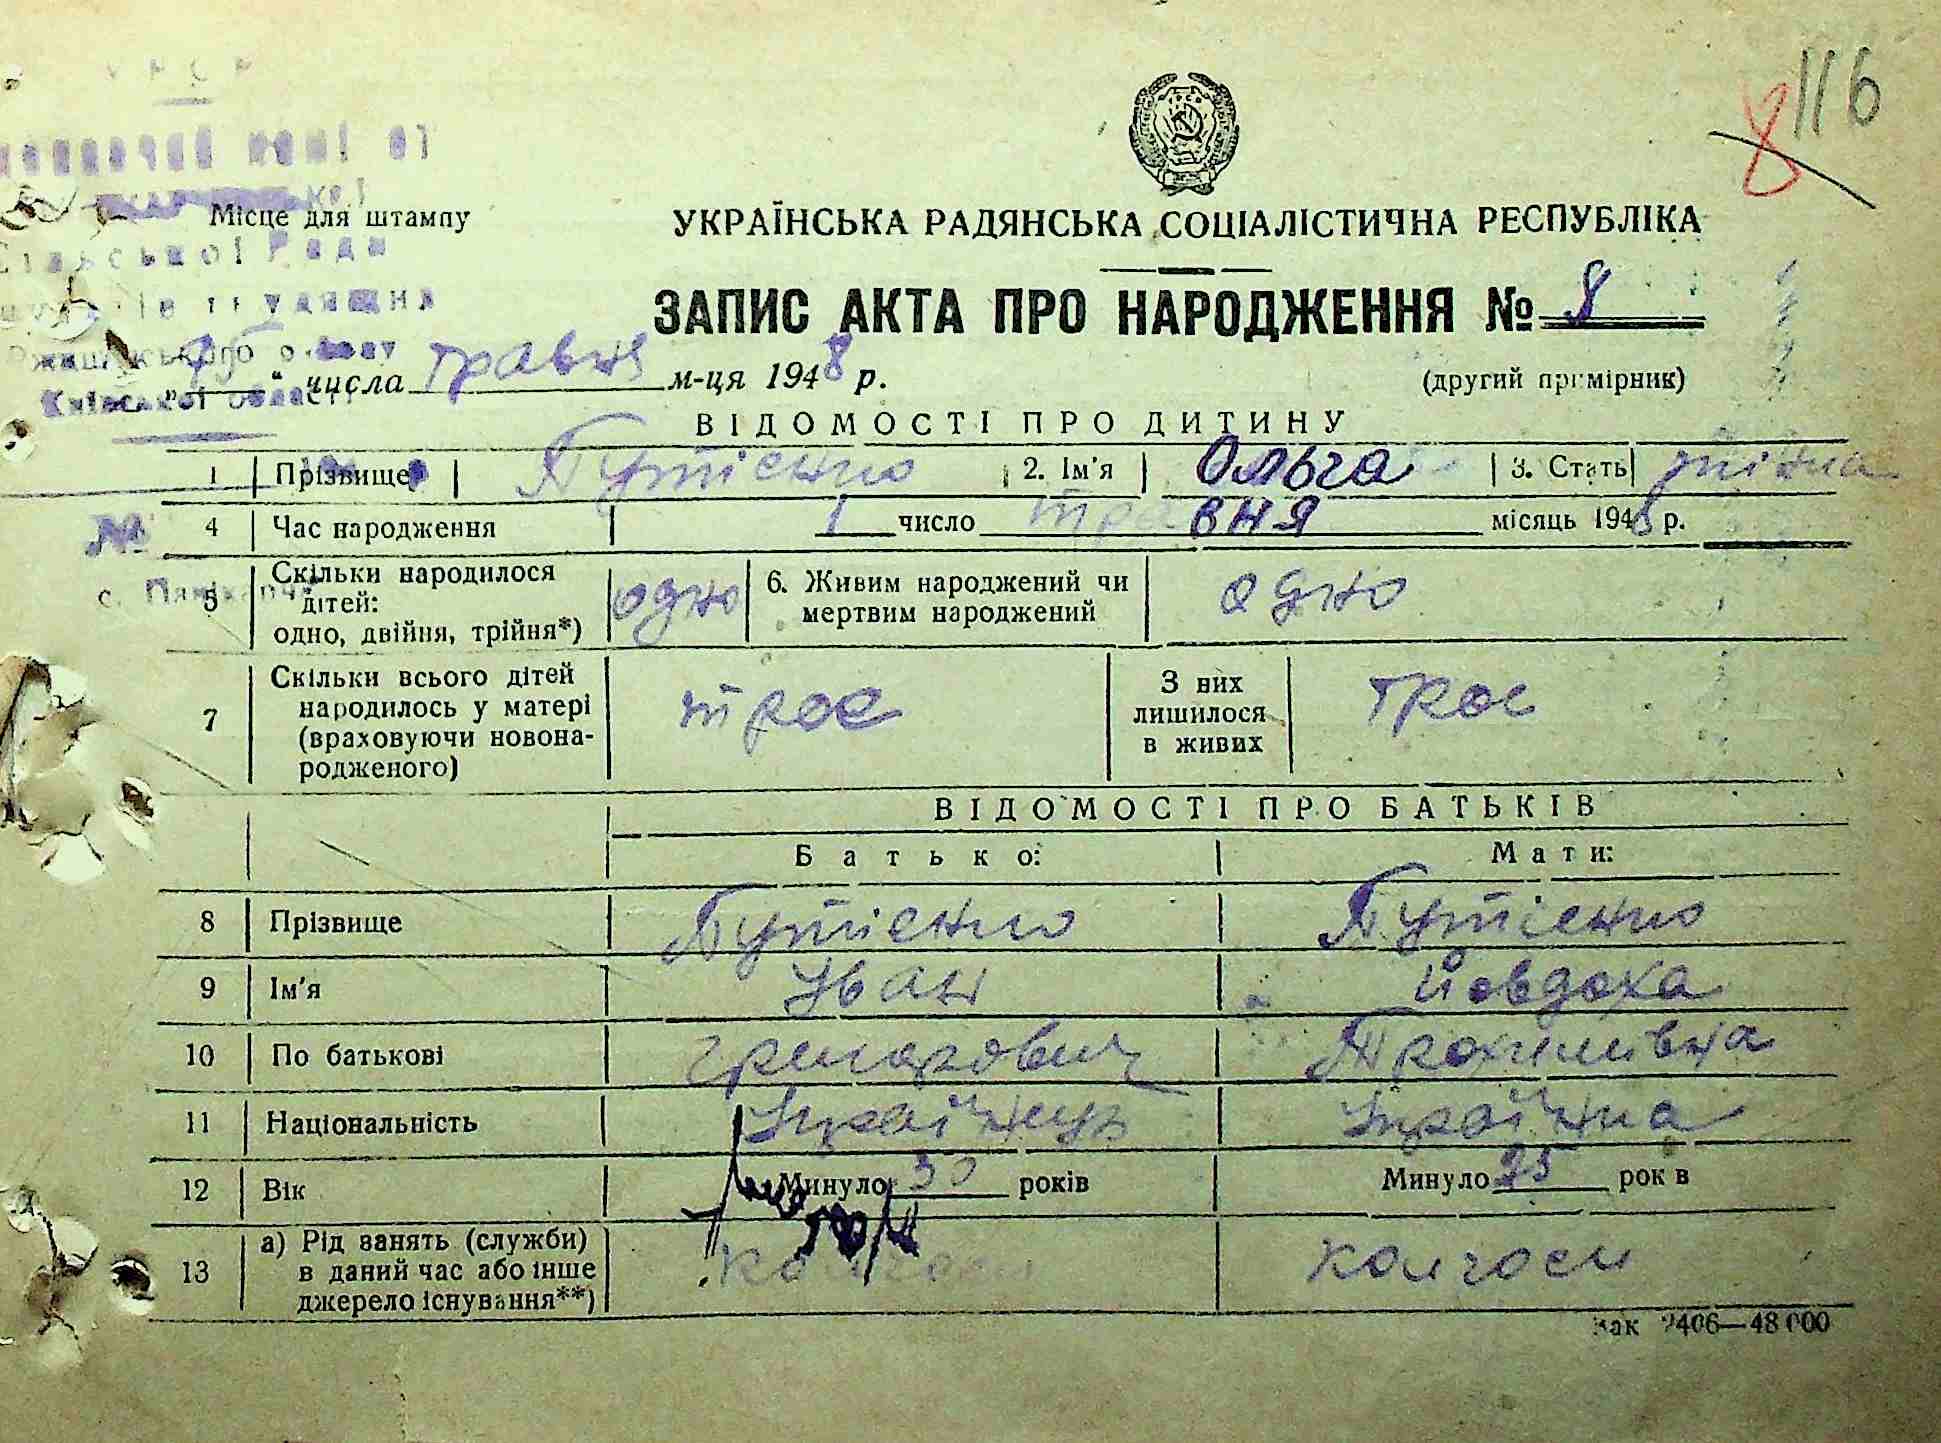 116
8
УРСР
Місце для штампу
Сільської Ради
Київської області
УКРАЇНСЬКА РАДЯНСЬКА СОЦІАЛІСТИЧНА РЕСПУБЛІКА
ЗАПИС АКТА ПРО НАРОДЖЕННЯ № 8
„ “ числа травня м-ця 1948 р.
(другий примірник)
ВІДОМОСТІ ПРО ДИТИНУ
1 Прізвище Путієнко 2. Ім'я Ольга 3. Стать
№
4 Час народження 1 число травня місяць 1948 р.
5 Скільки народилося дітей: одно, двійня, трійня*) одно 6. Живим народжений чи мертвим народжений одно
7 Скільки всього дітей народилось у матері (враховуючи новонародженого) троє З них лишилося в живих троє
ВІДОМОСТІ ПРО БАТЬКІВ
Батько: Мати:
8 Прізвище Путієнко Путієнко
9 Ім'я Іван Йовдоха
10 По батькові Григорович Трохимівна
11 Національність Українець Українка
12 Вік Минуло 30 років Минуло 25 років
13 а) Рід занять (служби) в даний час або інше джерело існування**) колгосп
Зак 2406—48 000